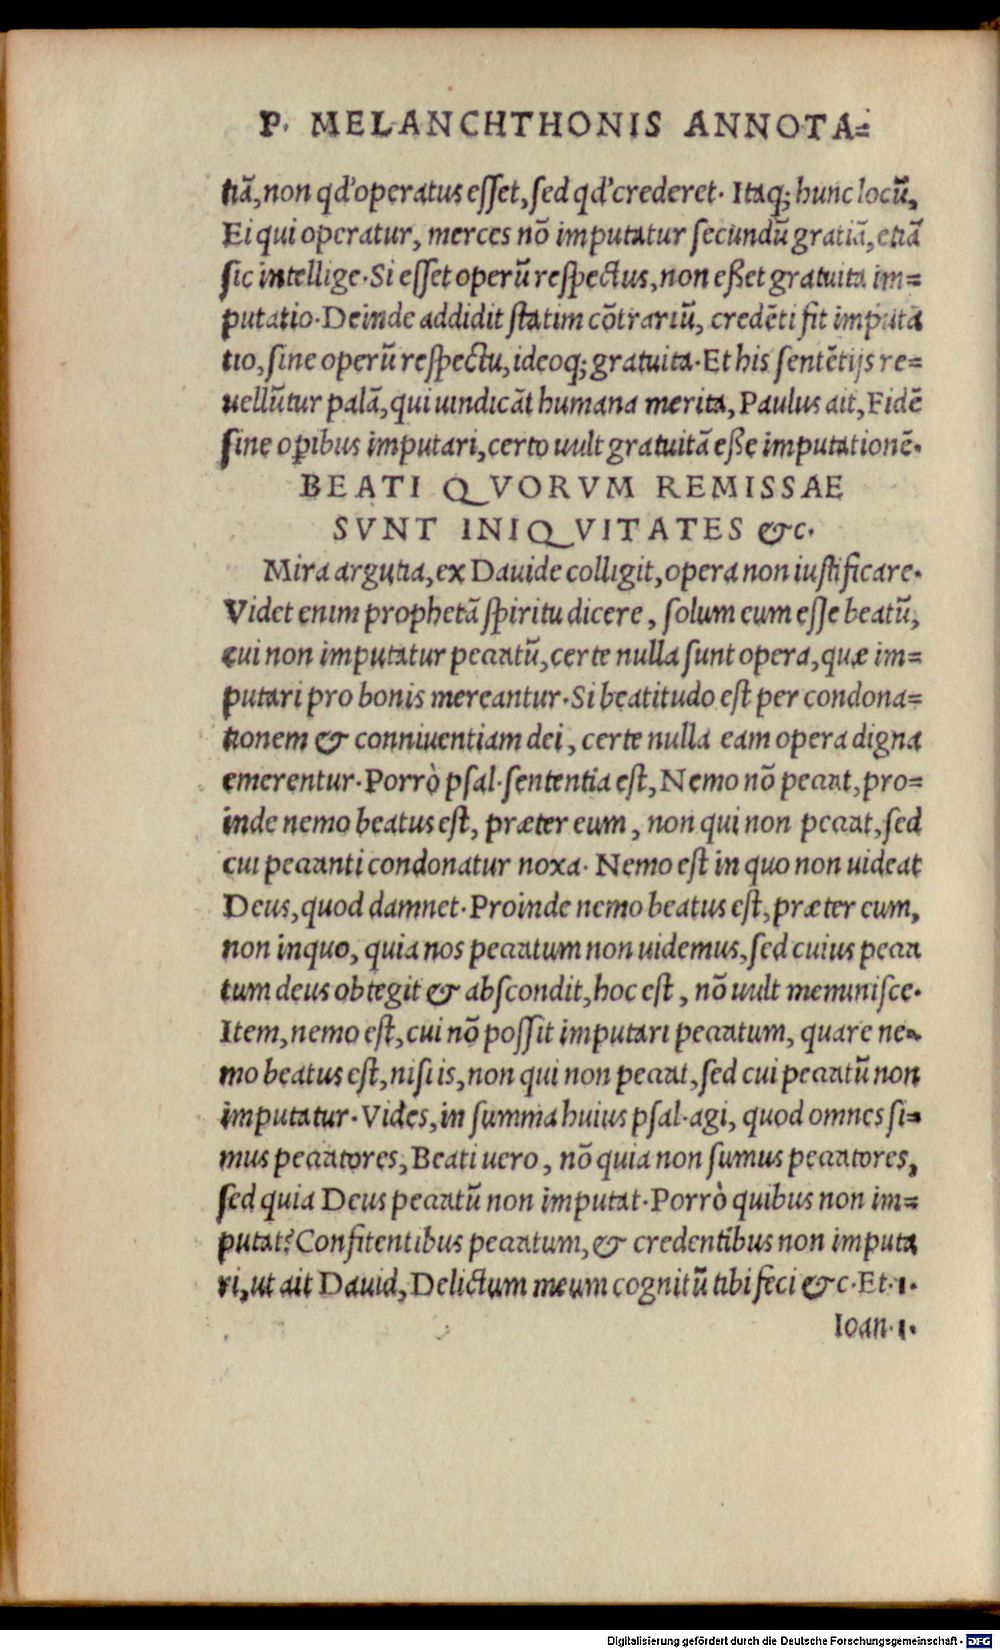 P. MELANCHTHONIS ANNOTA=
tiã, non qđ operatus esset, sed qđ crederet. Itaq; hunc locũ,
Ei qui operatur, merces nõ imputatur secundũ gratiã, etiã
sic intellige. Si esset operũ respectus, non eßet gratuita im=
putatio. Deinde addidit statim cõtrariũ, credẽti fit imputa
tio, sine operũ respectu, ideoq; gratuita. Et his sentẽtijs re=
uellũtur palã, qui uindicãt humana merita, Paulus ait, Fidẽ
sine oꝑibus imputari, certo uult gratuitã eße imputationẽ.
BEATI QVORVM REMISSAE
SVNT INIQVITATES &c.
Mira argutia, ex Dauide colligit, opera non iustificare.
Videt enim prophetã spiritu dicere, solum eum esse beatũ,
cui non imputatur peccatũ, certe nulla sunt opera, quæ im=
putari pro bonis mereantur. Si beatitudo est per condona=
tionem & conniuentiam dei, certe nulla eam opera digna
emerentur. Porrò psal. sententia est, Nemo nõ peccat, pro=
inde nemo beatus est, præter eum, non qui non peccat, sed
cui peccanti condonatur noxa. Nemo est in quo non uideat
Deus, quod damnet. Proinde nemo beatus est, præter eum,
non inquo, quia nos peccatum non uidemus, sed cuius pecca
tum deus obtegit & abscondit, hoc est, nõ uult meminisce.
Item, nemo est, cui nõ possit imputari peccatum, quare ne=
mo beatus est, nisi is, non qui non peccat, sed cui peccatũ non
imputatur. Vides, in summa huius psal. agi, quod omnes si=
mus peccatores, Beati uero, nõ quia non sumus peccatores,
sed quia Deus peccatũ non imputat. Porrò quibus non im=
putat? Confitentibus peccatum, & credentibus non imputa
ri, ut ait Dauid, Delictum meum cognitũ tibi feci &c. Et. 1.
Ioan. 1.
Digitalisierung gefördert durch die Deutsche Forschungsgemeinschaft - DFG